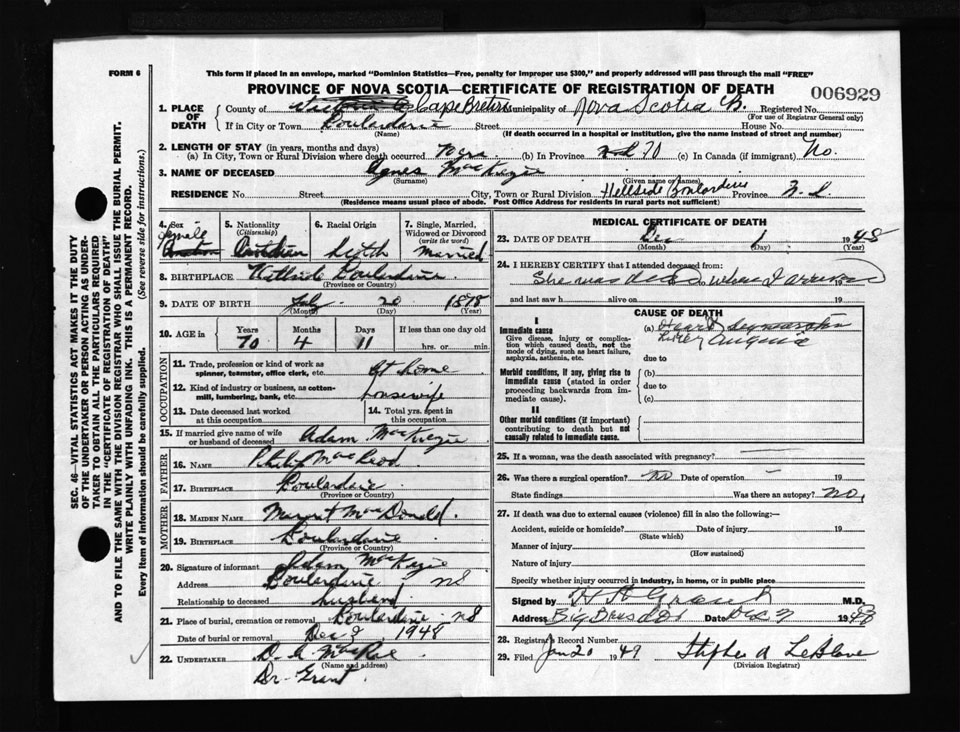 FORM 6
This form if placed in an envelope, marked "Dominion Statistics—Free, penalty for improper use $300," and properly addressed will pass through the mail "FREE"
PROVINCE OF NOVA SCOTIA—CERTIFICATE OF REGISTRATION OF DEATH
006929
1. PLACE OF DEATH
County of Cape Breton Municipality of Nova Scotia Registered No.
(For use of Registrar General only)
If in City or Town Boularderie Street House No.
(Name) (If death occurred in a hospital or institution, give the name instead of street and number)
2. LENGTH OF STAY (in years, months and days)
(a) In City, Town or Rural Division where death occurred (b) In Province 70 (c) In Canada (if immigrant) No.
3. NAME OF DECEASED Agnes MacKezie
(Surname) (Given name or names)
RESIDENCE No. Street City, Town or Rural Division Hillside Boularderie Province N.S.
(Residence means usual place of abode. Post Office Address for residents in rural parts not sufficient)
4. Sex female
5. Nationality (Citizenship) Canadien
6. Racial Origin
7. Single, Married, Widowed or Divorced (write the word) Married
8. BIRTHPLACE Boularderie
(Province or Country)
9. DATE OF BIRTH July 20 1878
(Month) (Day) (Year)
10. AGE in Years Months Days If less than one day old
70 4 11 hrs. or min.
OCCUPATION
11. Trade, profession or kind of work as spinner, teamster, office clerk, etc. At home
12. Kind of industry or business, as cotton-mill, lumbering, bank, etc. housewife
13. Date deceased last worked at this occupation
14. Total yrs. spent in this occupation
15. If married give name of wife or husband of deceased Adam MacKezie
FATHER
16. NAME Philip MacLeod
17. BIRTHPLACE Boularderie
(Province or Country)
MOTHER
18. MAIDEN NAME Margret MacDonald.
19. BIRTHPLACE Boularderie
(Province or Country)
20. Signature of informant Adam MacKezie
Address Boularderie NS
Relationship to deceased husband
21. Place of burial, cremation or removal Boularderie NS
Date of burial or removal Dec 3 1948
22. UNDERTAKER D. A. MacRae
(Name and address)
Dr. Grant.
MEDICAL CERTIFICATE OF DEATH
23. DATE OF DEATH Dec 1 1948
(Month) (Day) (Year)
24. I HEREBY CERTIFY that I attended deceased from:
She was dead when I arrived 19
and last saw h alive on 19
CAUSE OF DEATH
I
Immediate cause
Give disease, injury or complication which caused death, not the mode of dying, such as heart failure, asphyxia, asthenia, etc.
(a) Heart
Angina
due to
Morbid conditions, if any, giving rise to immediate cause (stated in order proceeding backwards from immediate).
(b)
due to
(c)
II
Other morbid conditions (if important) contributing to death but not causally related to immediate cause.
25. If a woman, was the death associated with pregnancy? —
26. Was there a surgical operation? no Date of operation — 19
State findings Was there an autopsy? no.
27. If death was due to external causes (violence) fill in also the following:—
Accident, suicide or homicide? Date of injury 19
(State which)
Manner of injury
(How sustained)
Nature of injury
Specify whether injury occurred in industry, in home, or in public place
Signed by Grant M.D.
Address Big Bras d'Or Date Dec 7 1948
28. Registrar's Record Number
29. Filed Jan 20 1949 Stephen A LeBlanc
(Division Registrar)
SEC. 46—VITAL STATISTICS ACT MAKES IT THE DUTY
OF THE UNDERTAKER OR PERSON ACTING AS UNDERTAKER
TO OBTAIN ALL THE PARTICULARS REQUIRED
IN THE "CERTIFICATE OF REGISTRATION OF DEATH"
AND TO FILE THE SAME WITH THE DIVISION REGISTRAR WHO SHALL ISSUE THE BURIAL PERMIT.
WRITE PLAINLY WITH UNFADING INK. THIS IS A PERMANENT RECORD.
Every item of Information should be carefully supplied. (See reverse side for instructions.)